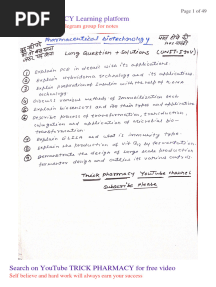 Page 1 of 49
PHARMACY Learning platform
Pharmaceutical Biotechnology
Long Question + Solutions (UNIT-I to V)
1 Explain PCR in detail with its applications
2 Explain hybridoma technology and its applications
3 Explain production insulin with the help of r-DNA technology
4 Discuss various methods of immobilization
5 Explain biosensors and its types and applications
6 Describe process of transformation, transduction, conjugation and application of Microbial bio-transformation.
7 Explain ELISA and what is immunity type.
8 Explain the production of vit B12 by fermentation.
9 Demonstrate the design of large scale production fermentor design and outline its various controls
Trick Pharmacy YouTube channel
Subscribe Please
Search on YouTube TRICK PHARMACY for free video
Self believe and hard work will always earn your success